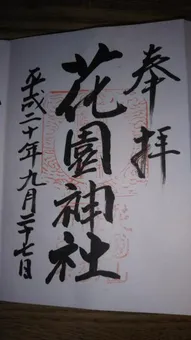 奉拝
花園神社
平成二十年九月二十七日